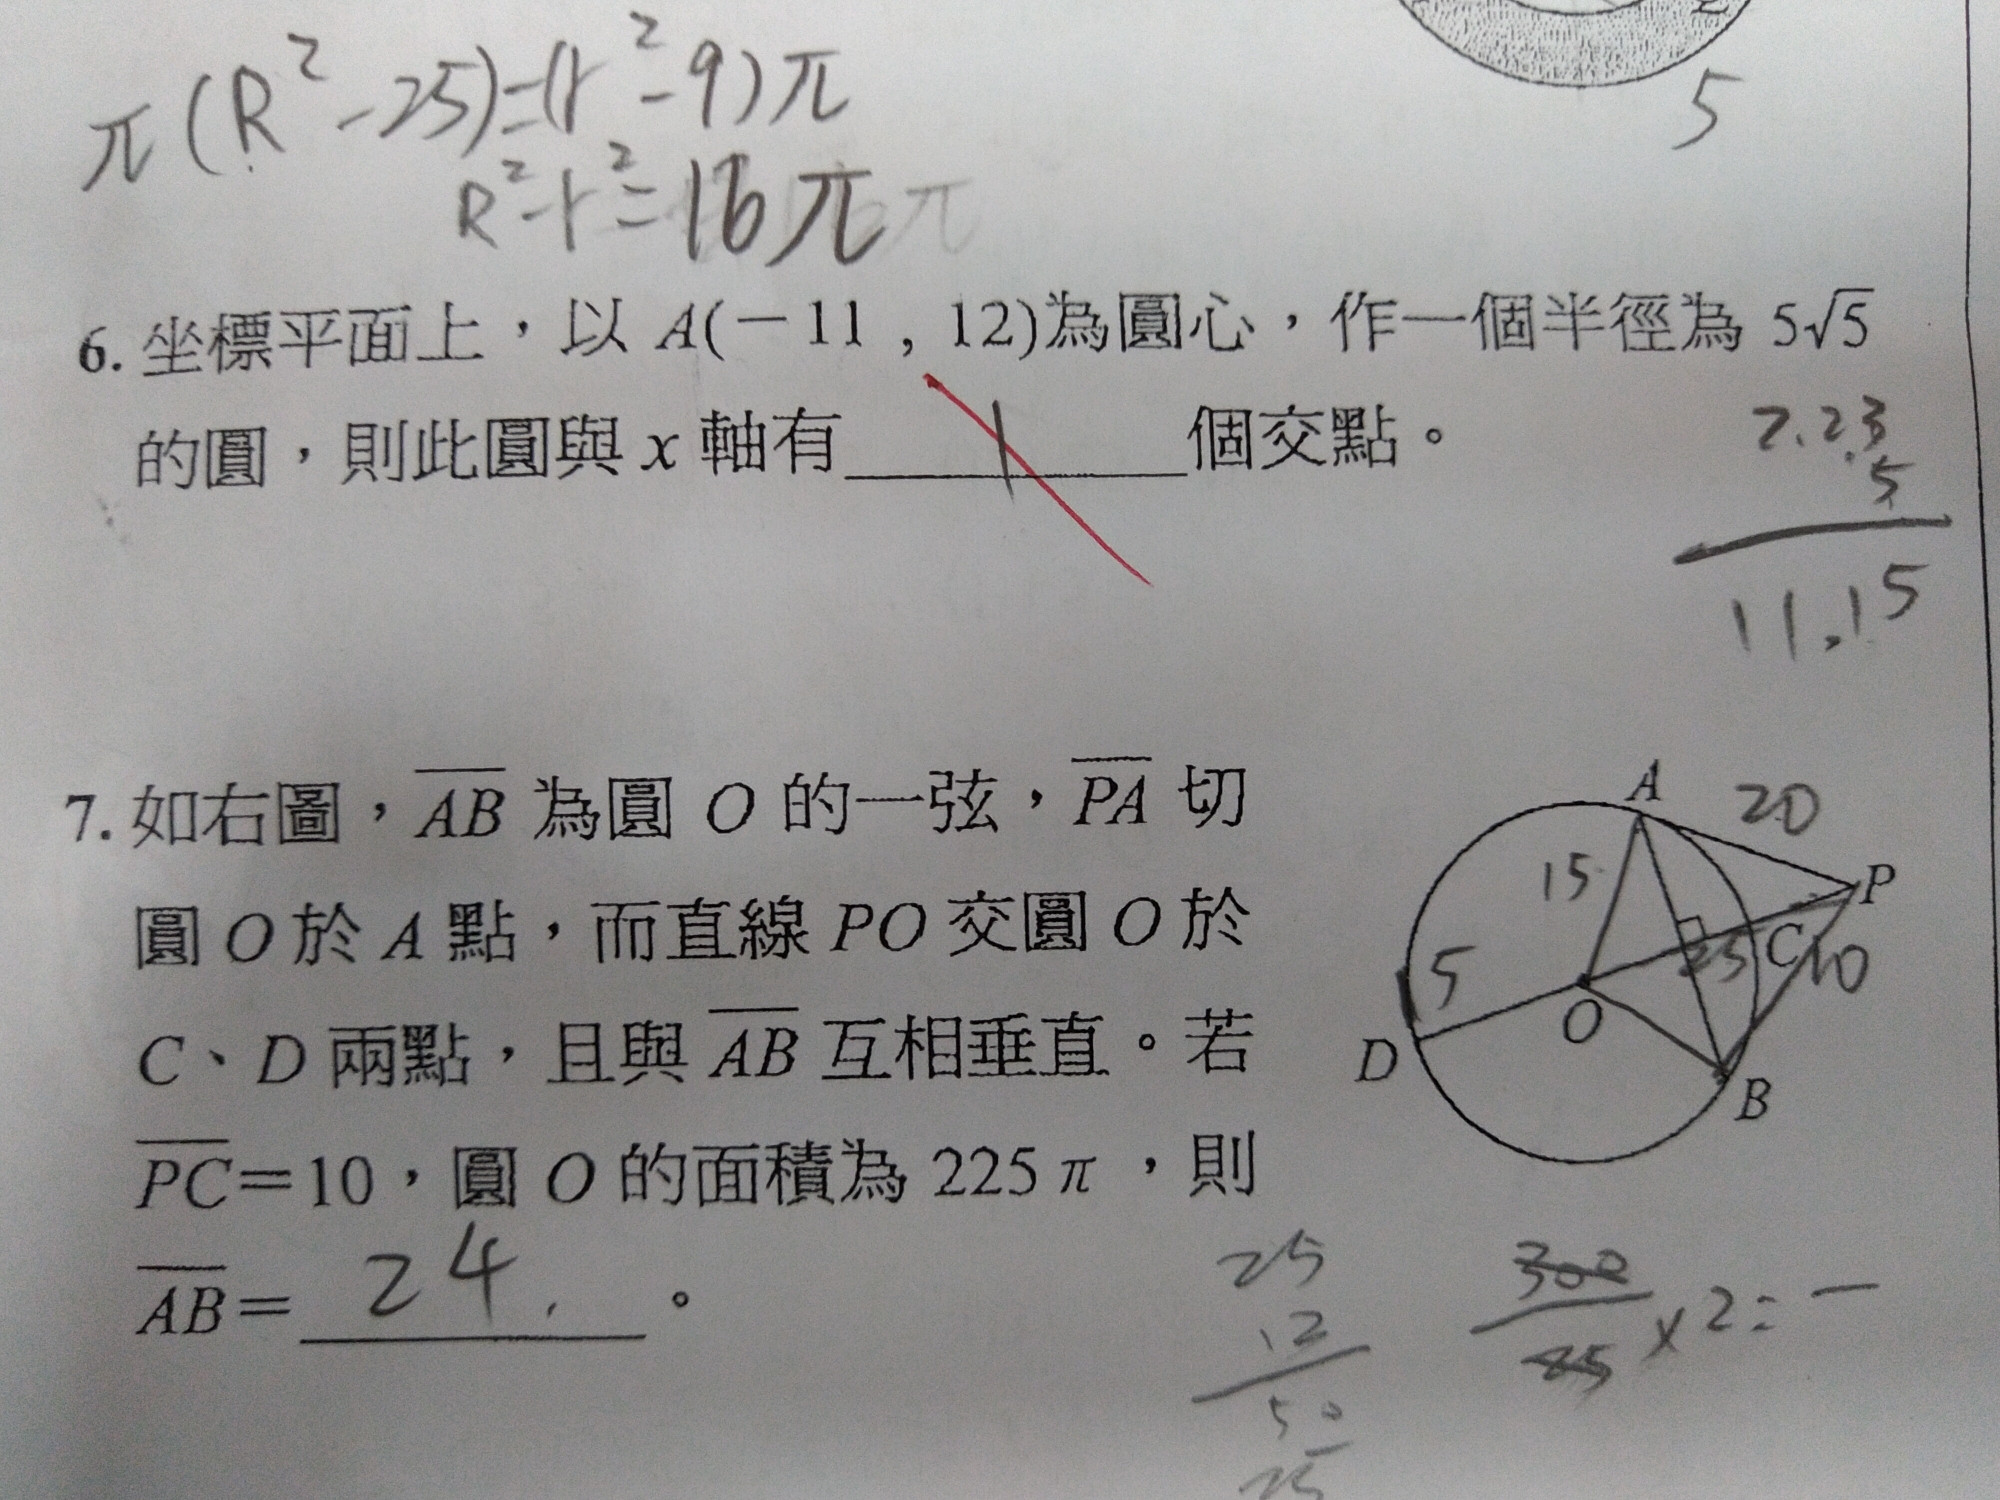 π(R²-25)=(r²-9)π
R²-r²=16π
5
6. 坐標平面上，以 A(－11 , 12)為圓心，作一個半徑為 5√5
的圓，則此圓與 x 軸有 1 個交點。
2.23
5
11.15
7. 如右圖，AB 為圓 O 的一弦，PA 切
圓 O 於 A 點，而直線 PO 交圓 O 於
C、D 兩點，且與 AB 互相垂直。若
PC＝10，圓 O 的面積為 225π，則
AB＝ 24 。
A
20
15
P
5
25
C
10
O
D
B
25
12
50
25
300
25
×2=